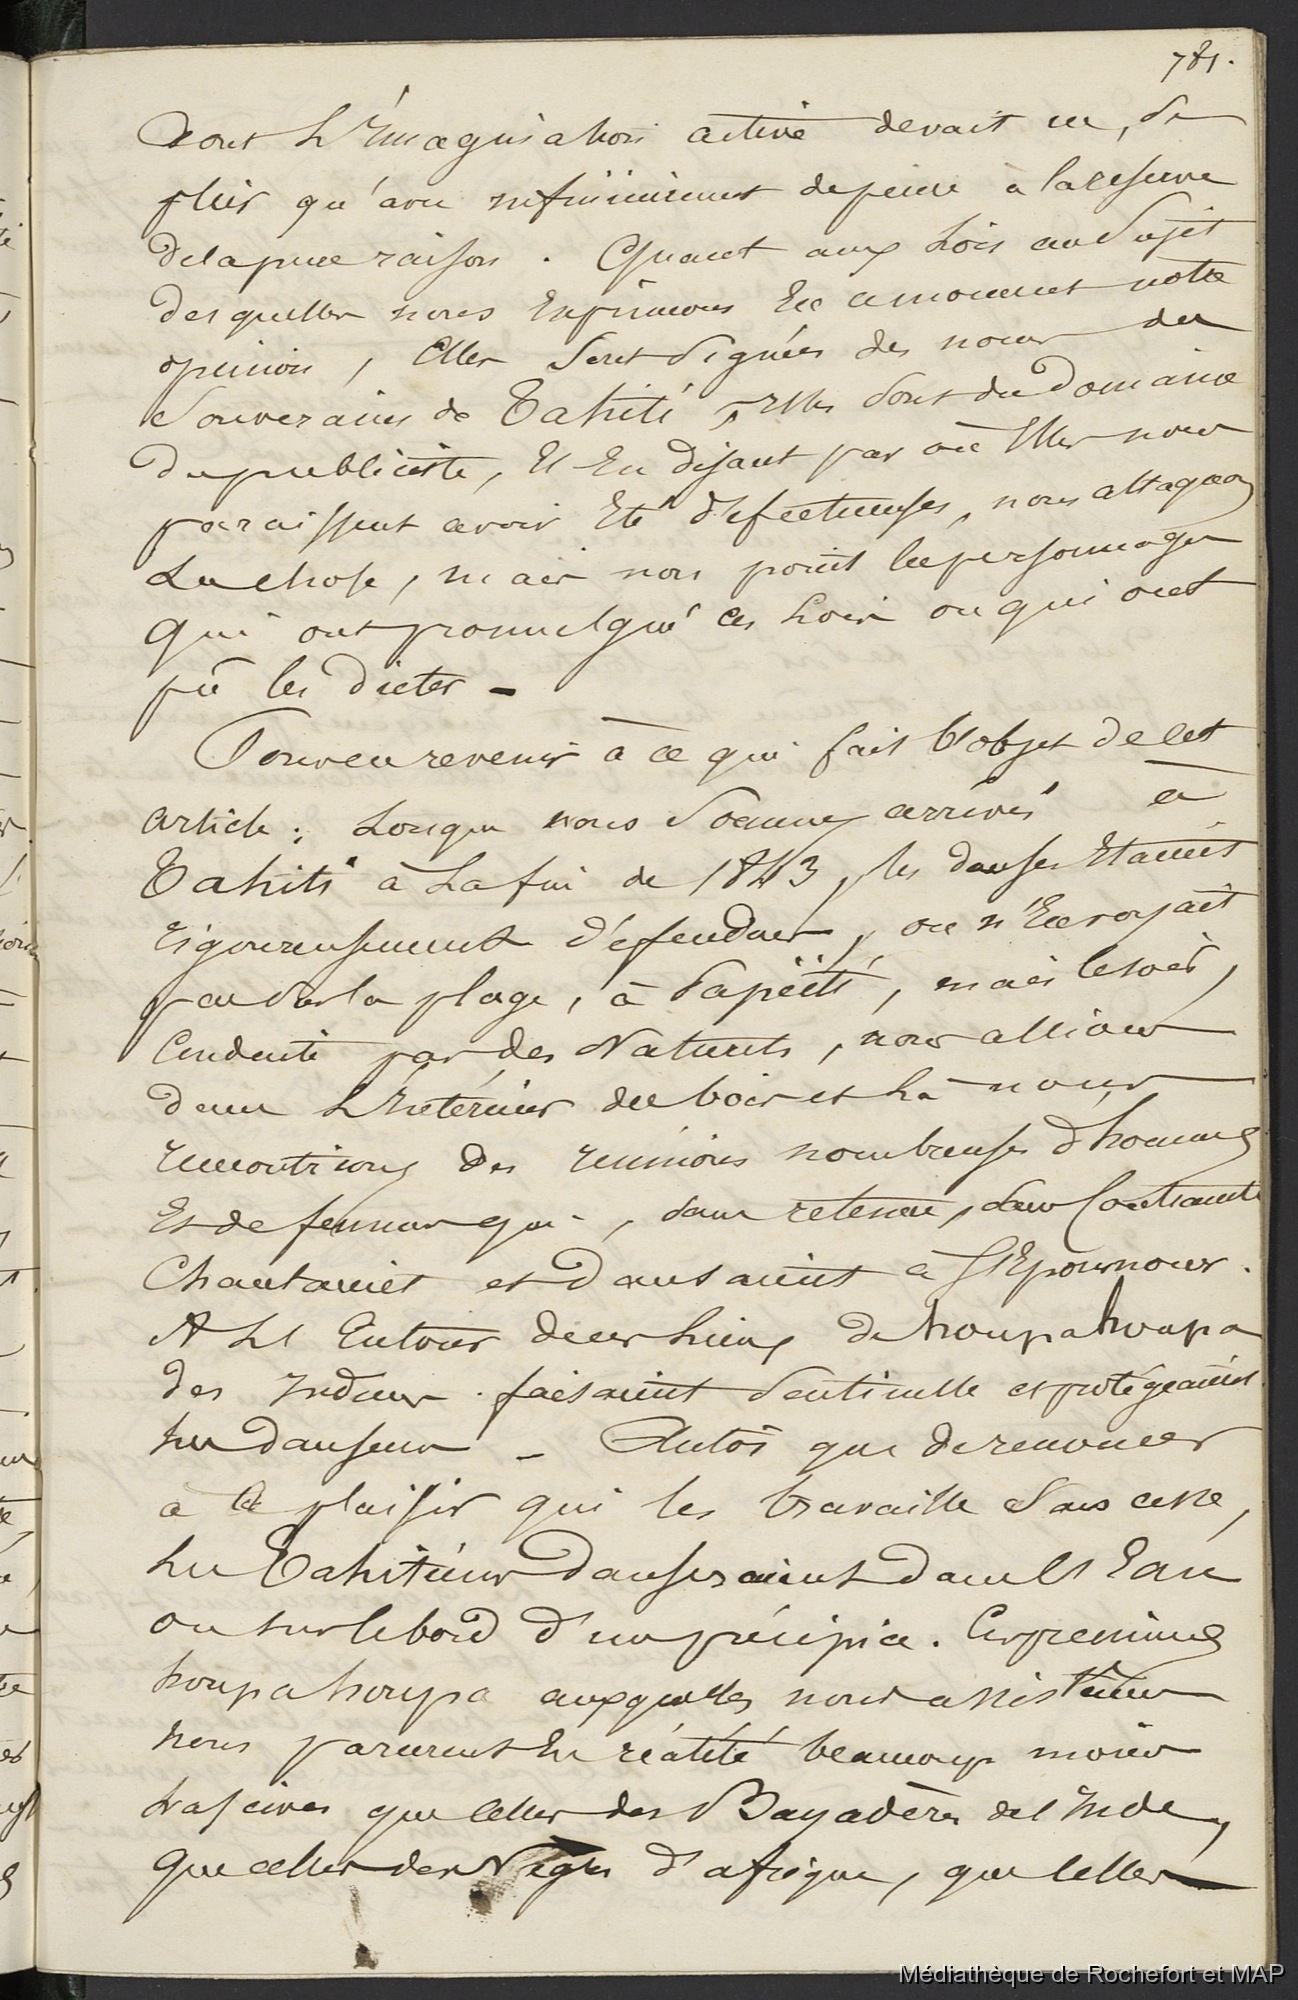 781.
dont L'Imagination active devait en, de
plier qu'avec infiniment de peine à la reserve
de la pure raison. Quant aux Lois au Sujet
desquelles nous Exprimons En ce moment notre
opinion, Elles Sont Signées des noms des
Souverains de Tahiti, Elles Sont du Domaine
du publiciste, Et En disant par où Elles nous
paraissent avoir Eté défectueuses, nous attaquons
La chose, mais non point les personnages
qui ont promulgué ces Lois ou qui ont
pû les dicter -
Pour en revenir à ce qui fait L'objet de cet
article ; Lorsque nous Sommes arrivés à
Tahiti à La fin de 1843, les danses Etaient
rigoureusement défendues, on n'En voyait
pas Sur la plage, à Papéïti, mais le soir,
Conduits par des Naturels, nous allions
dans L'Intérieur des bois et Là nous
rencontrions des réunions nombreuses d'hommes
Et de femmes qui, sans retenue, sans Contrainte
Chantaient et dansaient à S'Epoumoner.
A L'Entour de ces Lieux de houpahoupa
des Indiens faisaient Sentinelle et protégeaient
Les danseurs - Plutôt que de renoncer
à Ce plaisir qui les travaille Sans cesse,
Les Tahitiens danseraient dans L'Eau
ou sur le bord d'un précipice. Ces premiers
houpahoupa auxquelles nous assistâmes
nous parurent En réalité beaucoup moins
Lascives que Celles des Bayadères de l'Inde,
que celles des Nègres d'afrique, que Celles
Médiathèque de Rochefort et MAP